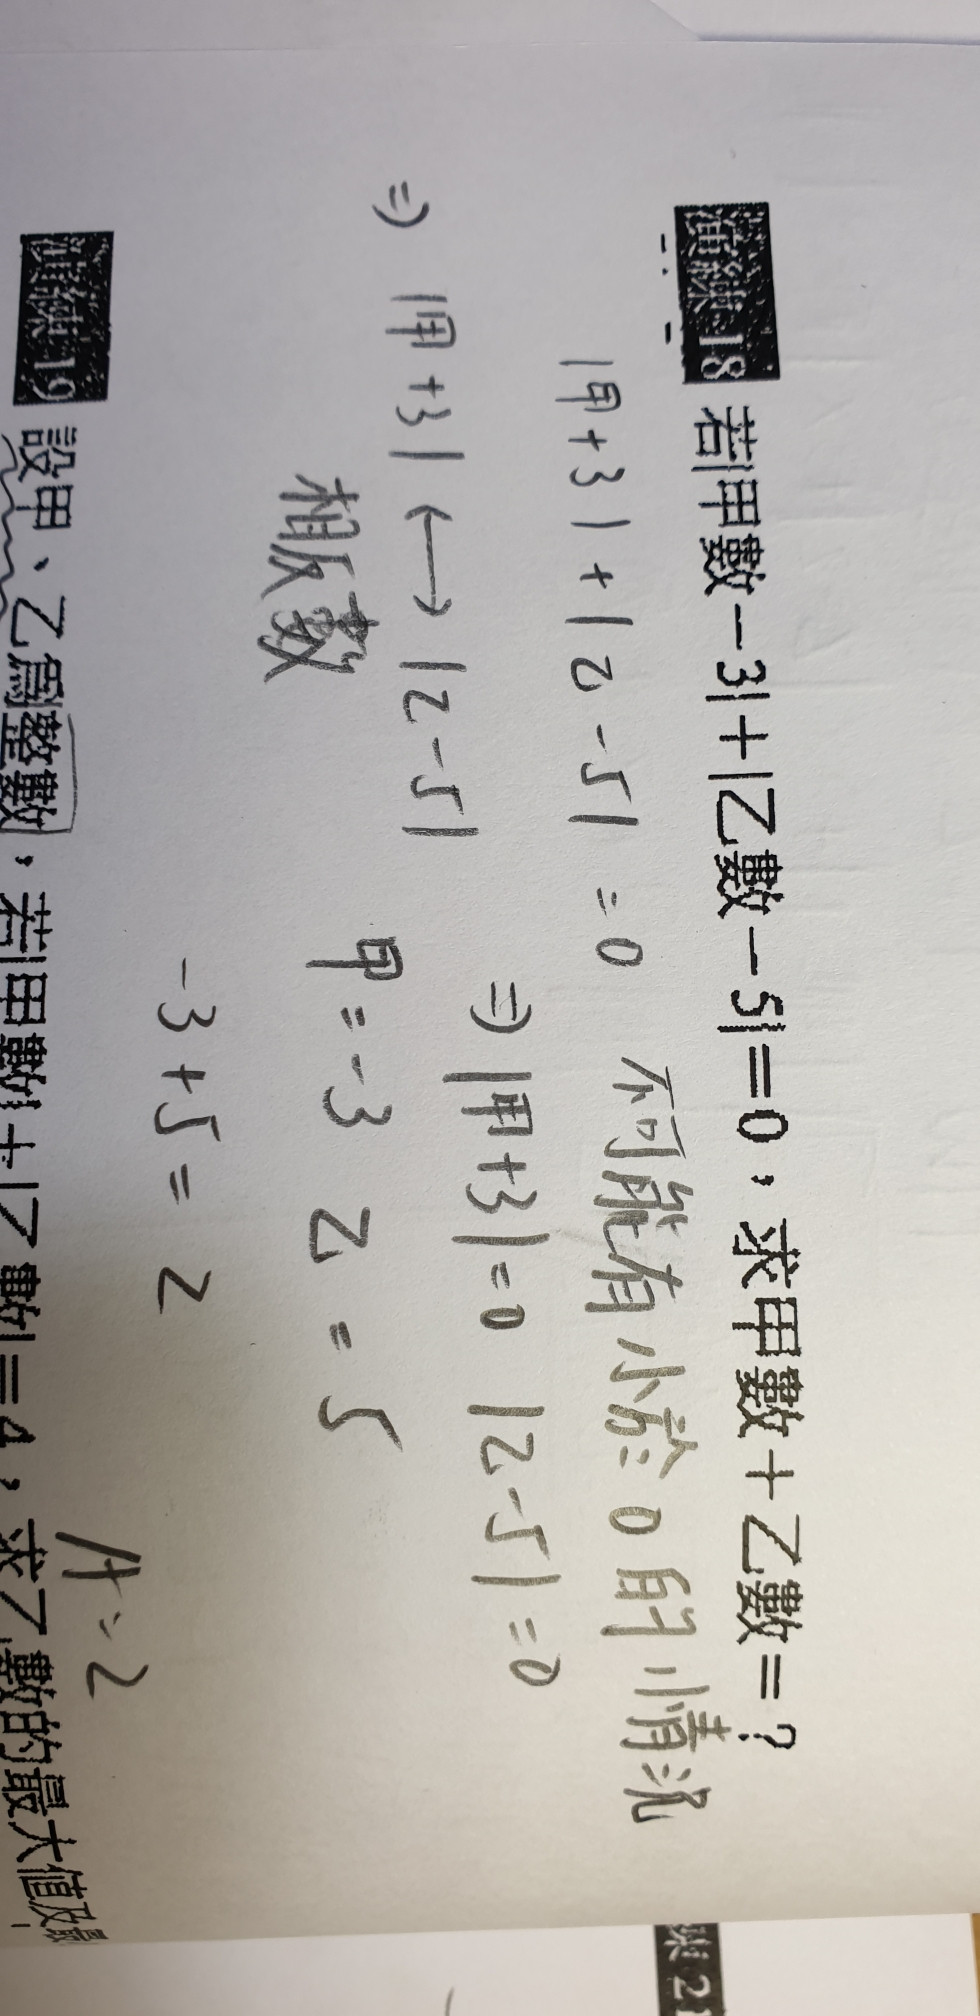 演練 18 若|甲數－3|＋|乙數－5|＝0，求甲數＋乙數＝？
|甲+3|+|乙-5|=0 不可能有小於0的情況
⇒ |甲+3|=0 |乙-5|=0
⇒ |甲+3| ⟷ |乙-5|
相反數
甲=-3 乙=5
-3+5=2
A:2
演練 19 設甲、乙為整數，若|甲數|＋|乙數|＝4，求乙數的最大值及最